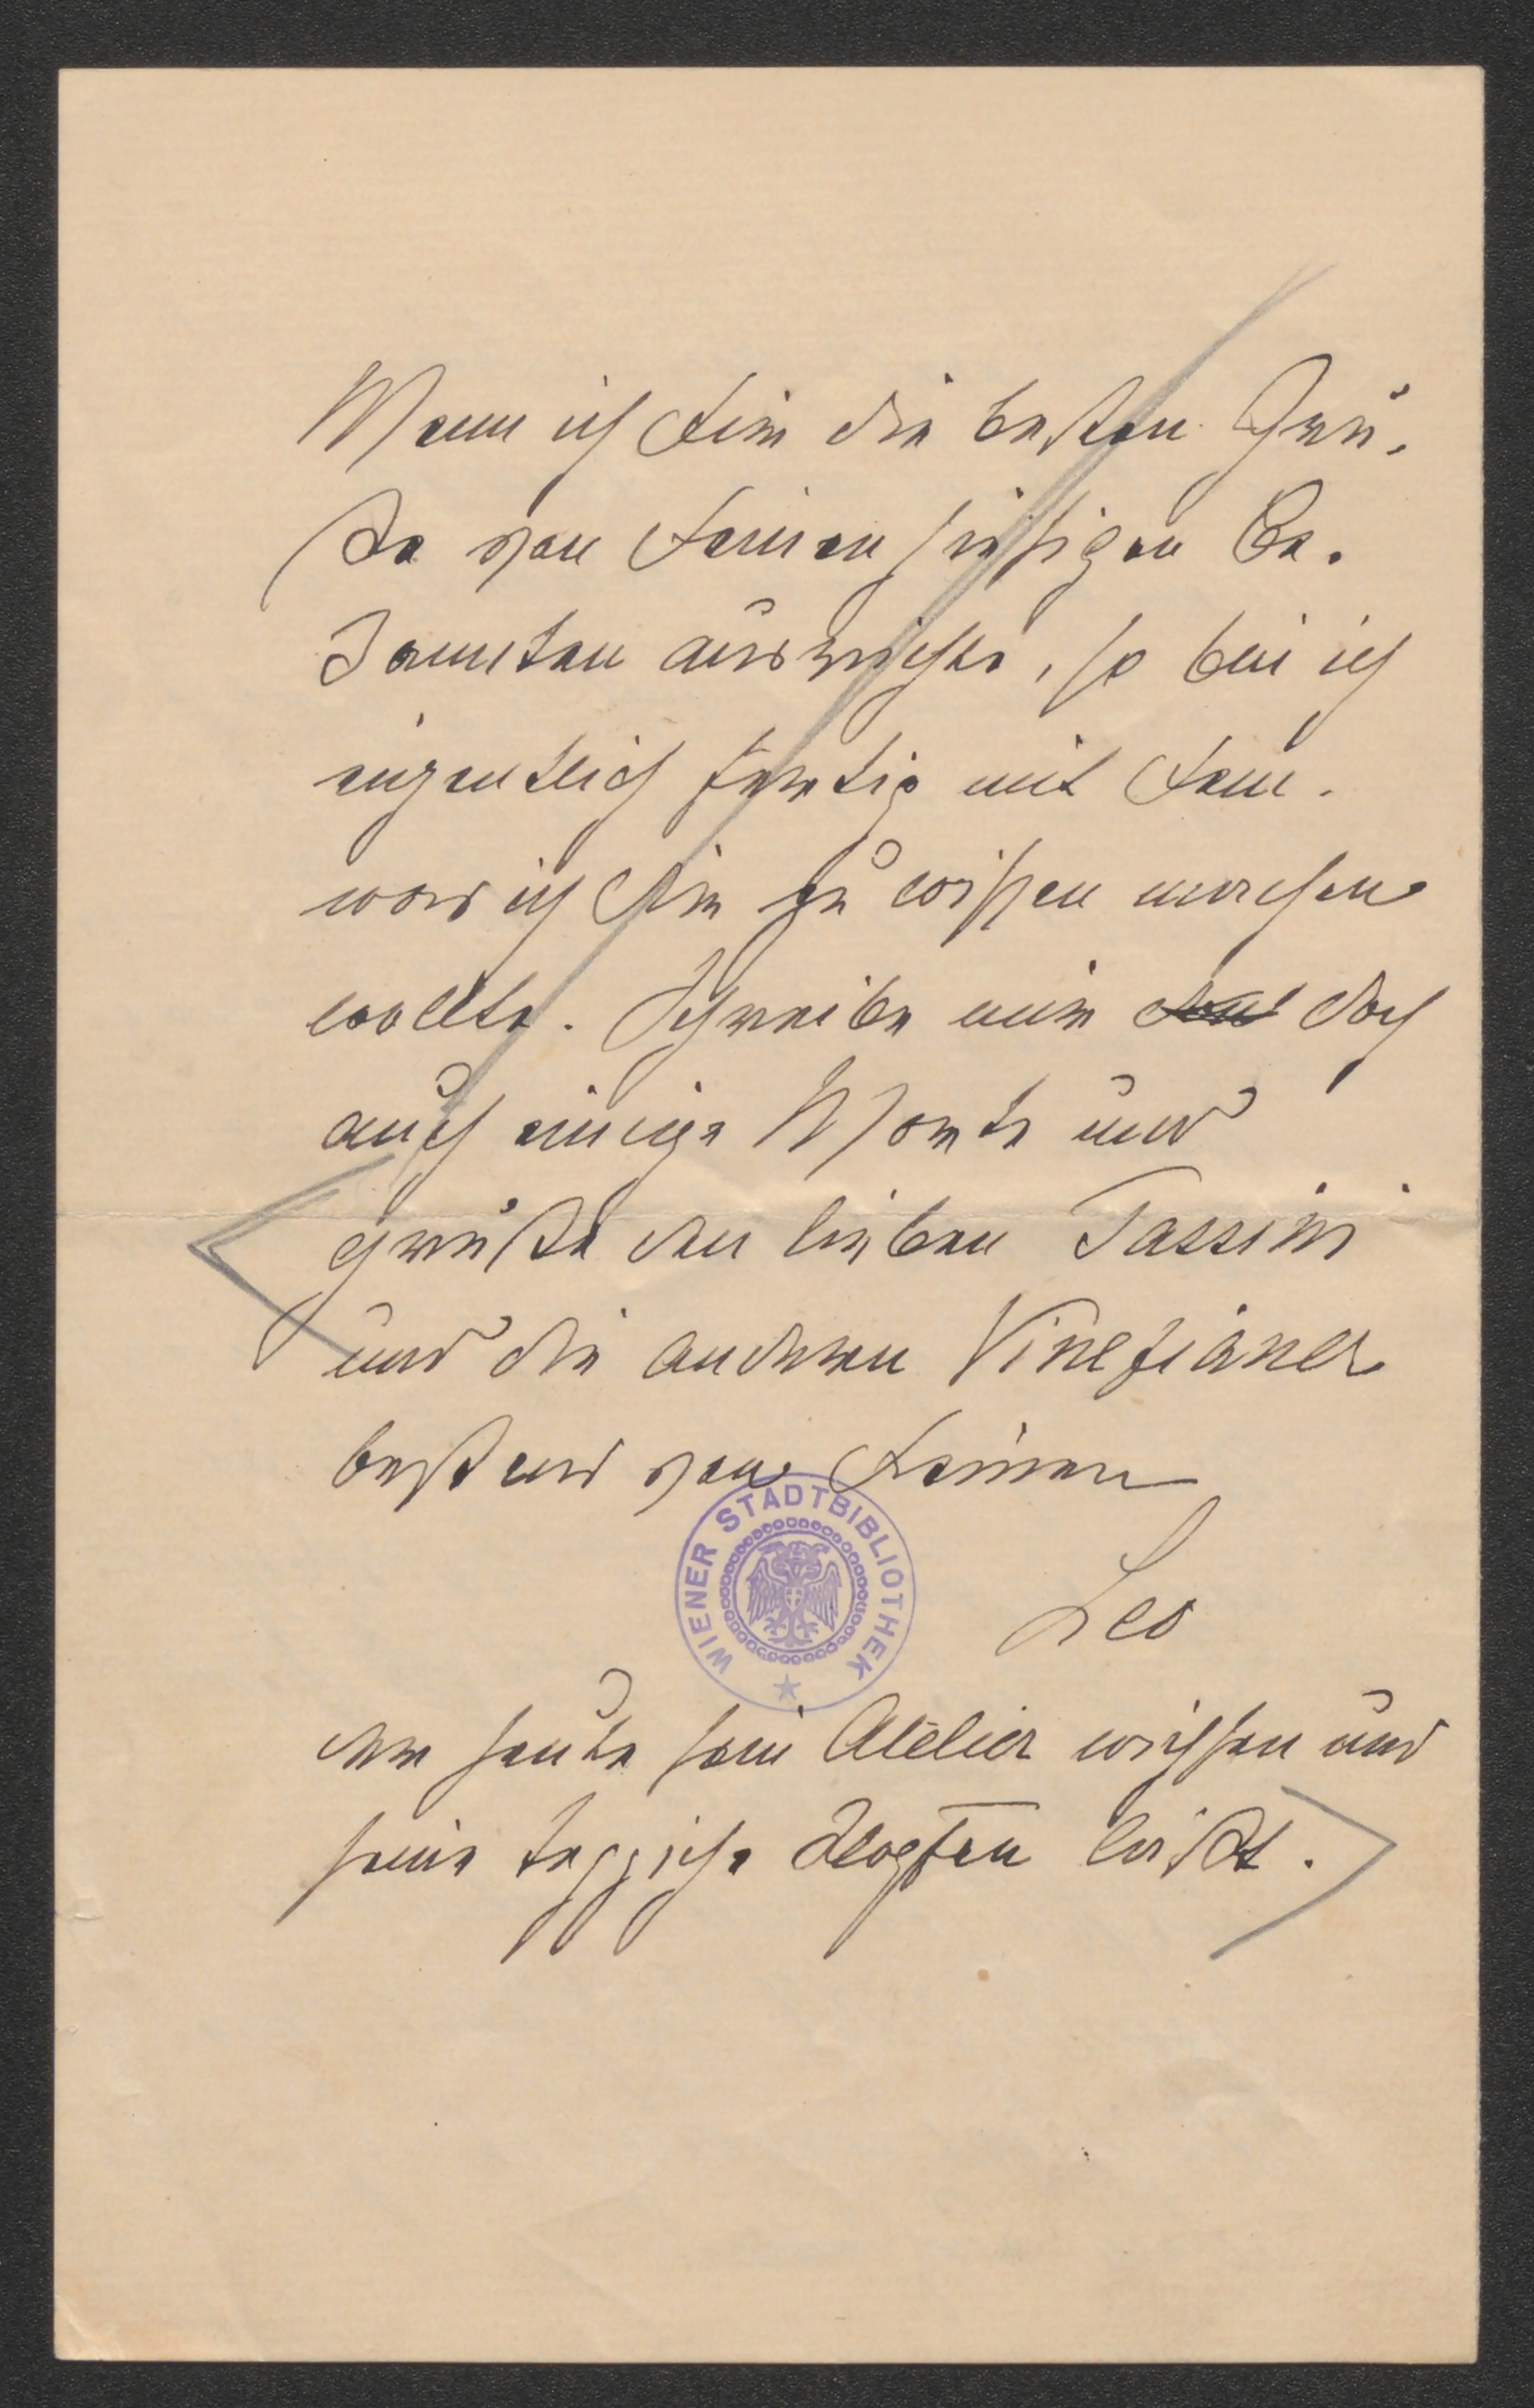 Wenn ich Dir die besten Grü-
ße von Deinen hiesigen Be-
kannten ausrichte, so bin ich
eigentlich fertig mit dem.
was ich Dir zu wissen machen
wollte. Schreibe mir doch
auch einige Worte und
grüße den lieben Tassini
und die anderen Vinezianer
bestens von Deinem
Leo
WIENER STADTBIBLIOTHEK
der heute sein Atelier wichsen und
seine Teppiche klopfen läßt.